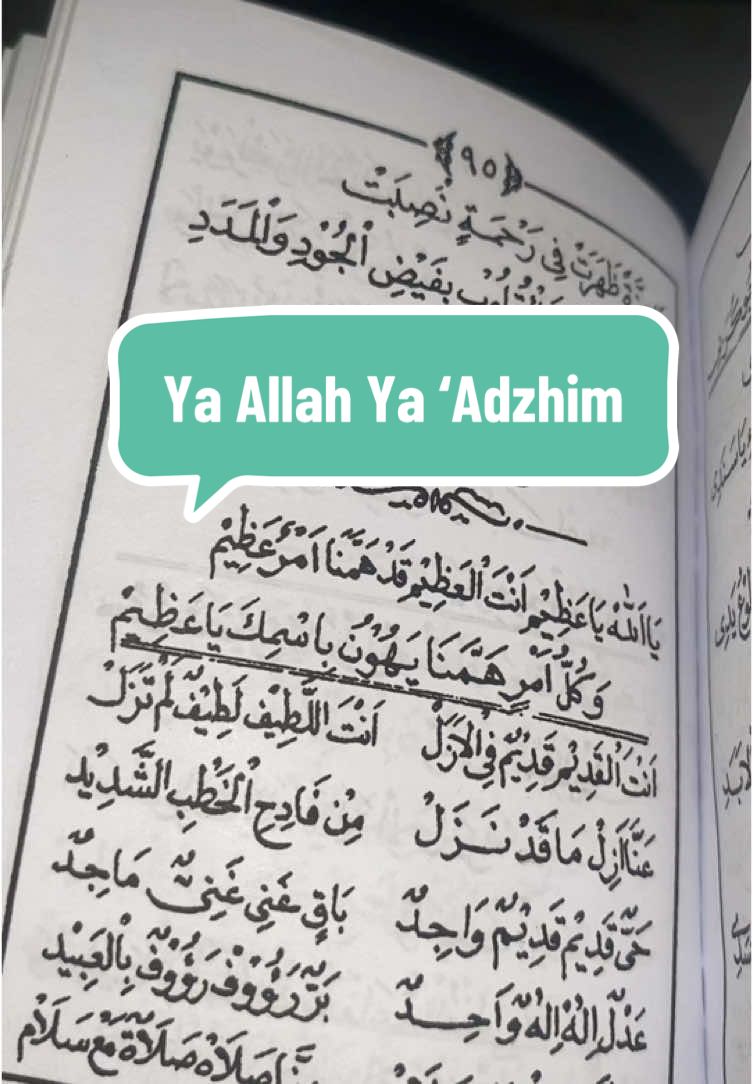 ﴿٩٥﴾
ظَهَرَتْ فِي رَحْمَةٍ نُصِبَتْ
بِفَيْضِ الْجُوْدِ وَالْمَدَدِ
Ya Allah Ya ‘Adzhim
يَااَللّٰه يَاعَظِيْم اَنْتَ الْعَظِيْم قَدْ هَمَّنَا اَمْرٌ عَظِيْمْ
وَكُلُّ اَمْرٍ هَمَّنَا يَهُوْنُ بِاسْمِكَ يَاعَظِيْمْ
اَنْتَ الْقَدِيْم قَدِيْمٌ فِى الْاَزَلْ اَنْتَ اللَّطِيْف لَطِيْفٌ لَمْ تَزَلْ
عَنَّا اَزِلْ مَا قَدْ نَزَلْ مِنْ فَادِحِ الْخَطْبِ الشَّدِيْد
حَيٌّ قَدِيْم قَدِيْمٌ وَاجِدٌ بَاقٍ غَنِي غَنِيٌّ مَاجِدٌ
عَدْلٌ اِلٰهْ اِلٰهٌ وَاحِدٌ بَرٌّ رَؤُوْف رَؤُوْفٌ بِالْعَبِيْد
صَلَاةْ صَلَاةٌ مَعْ سَلَامْ